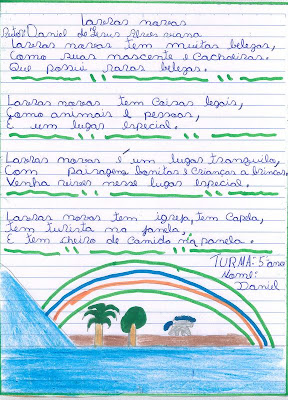 Lavras novas
Autor: Daniel de Jesus Alves viana
Lavras novas tem muitas belezas,
Como suas nascente e Cachoeiras.
Que possui raras belezas.
Lavras novas tem Coisas legais,
Como animais e pessoas,
E um lugar especial.
Lavras novas é um lugar tranquila,
Com paisagens bonitas e Crianças a brincar,
Venha viver nesse lugar especial.
Lavras novas tem igreja, tem Capela,
tem turista na janela,
E tem cheiro de Comida na panela.
TURMA: 5º ano
Nome:
Daniel